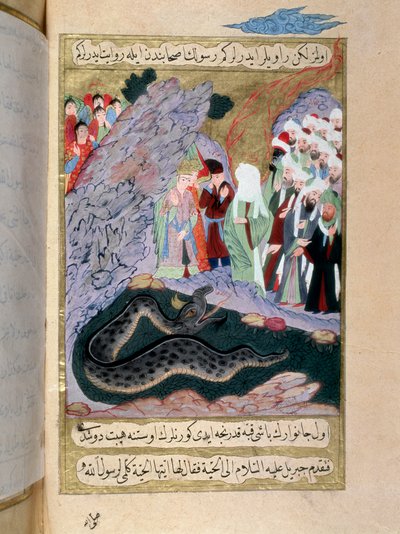 لكن راويلر ايدرلر كم رسولك صحابندن ايله روايت ايدرلر كم
اول جانوارك باشى قبه قدرنجه ايدى كورنلرك اوستنه هيبت
فتقدم جبريل عليه السلام الى الحية فقال لها ايتها الحية كلمى لرسول الله و